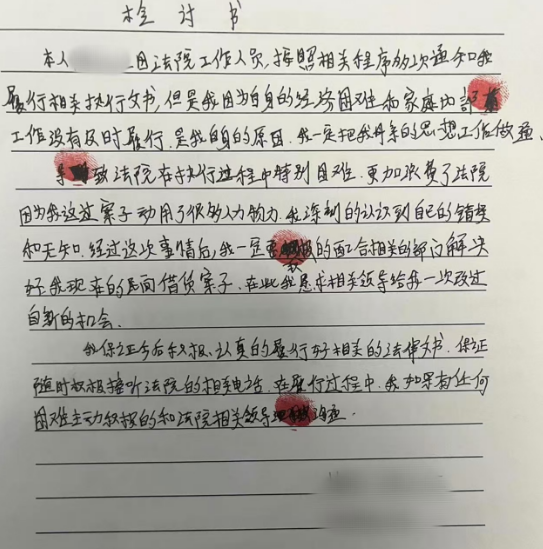 检讨书
本人 因法院工作人员,按照相关程序多次通知我
履行相关执行文书,但是我因为自身的经济困难和家庭内部
工作没有及时履行。是我自身的原因,我一定把我母亲的思想工作做通。
导致法院在执行过程中特别困难,更加浪费了法院
因为我这边案子动用了很多人力物力。我深刻的认识到自己的错误
和无知。经过这次事情后,我一定 积极的配合相关的部门解决
好我现在的民间借贷案子。在此我恳求相关领导给我一次改过
自新的机会。
我保证今后积极、认真的履行好相关的法律文书。保证
随时积极接听法院的相关电话。在履行过程中,我如果有任何
困难主动积极的和法院相关领导 沟通。